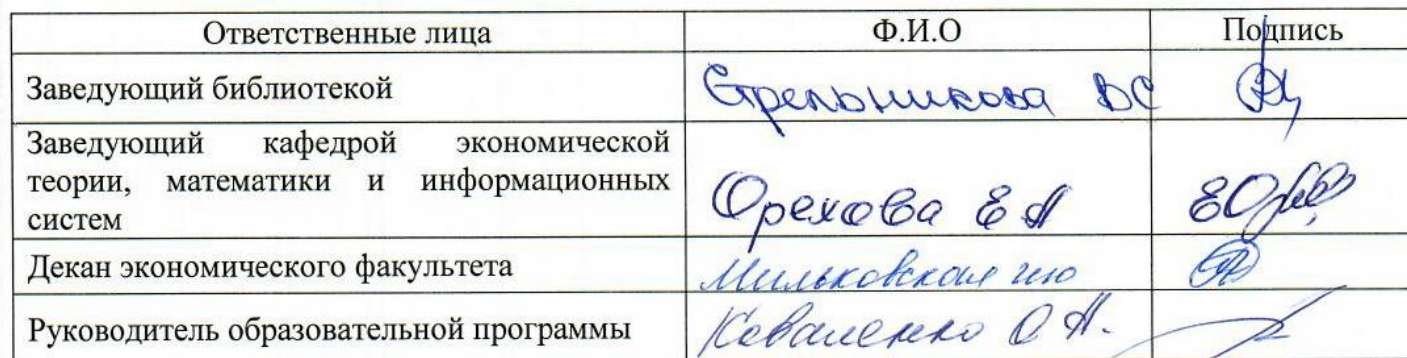 Ответственные лица Ф.И.О Подпись
Заведующий библиотекой Стрельникова ВС
Заведующий кафедрой экономической
теории, математики и информационных
систем Орехова Е А
Декан экономического факультета Мильковская
Руководитель образовательной программы Коваленко О А.